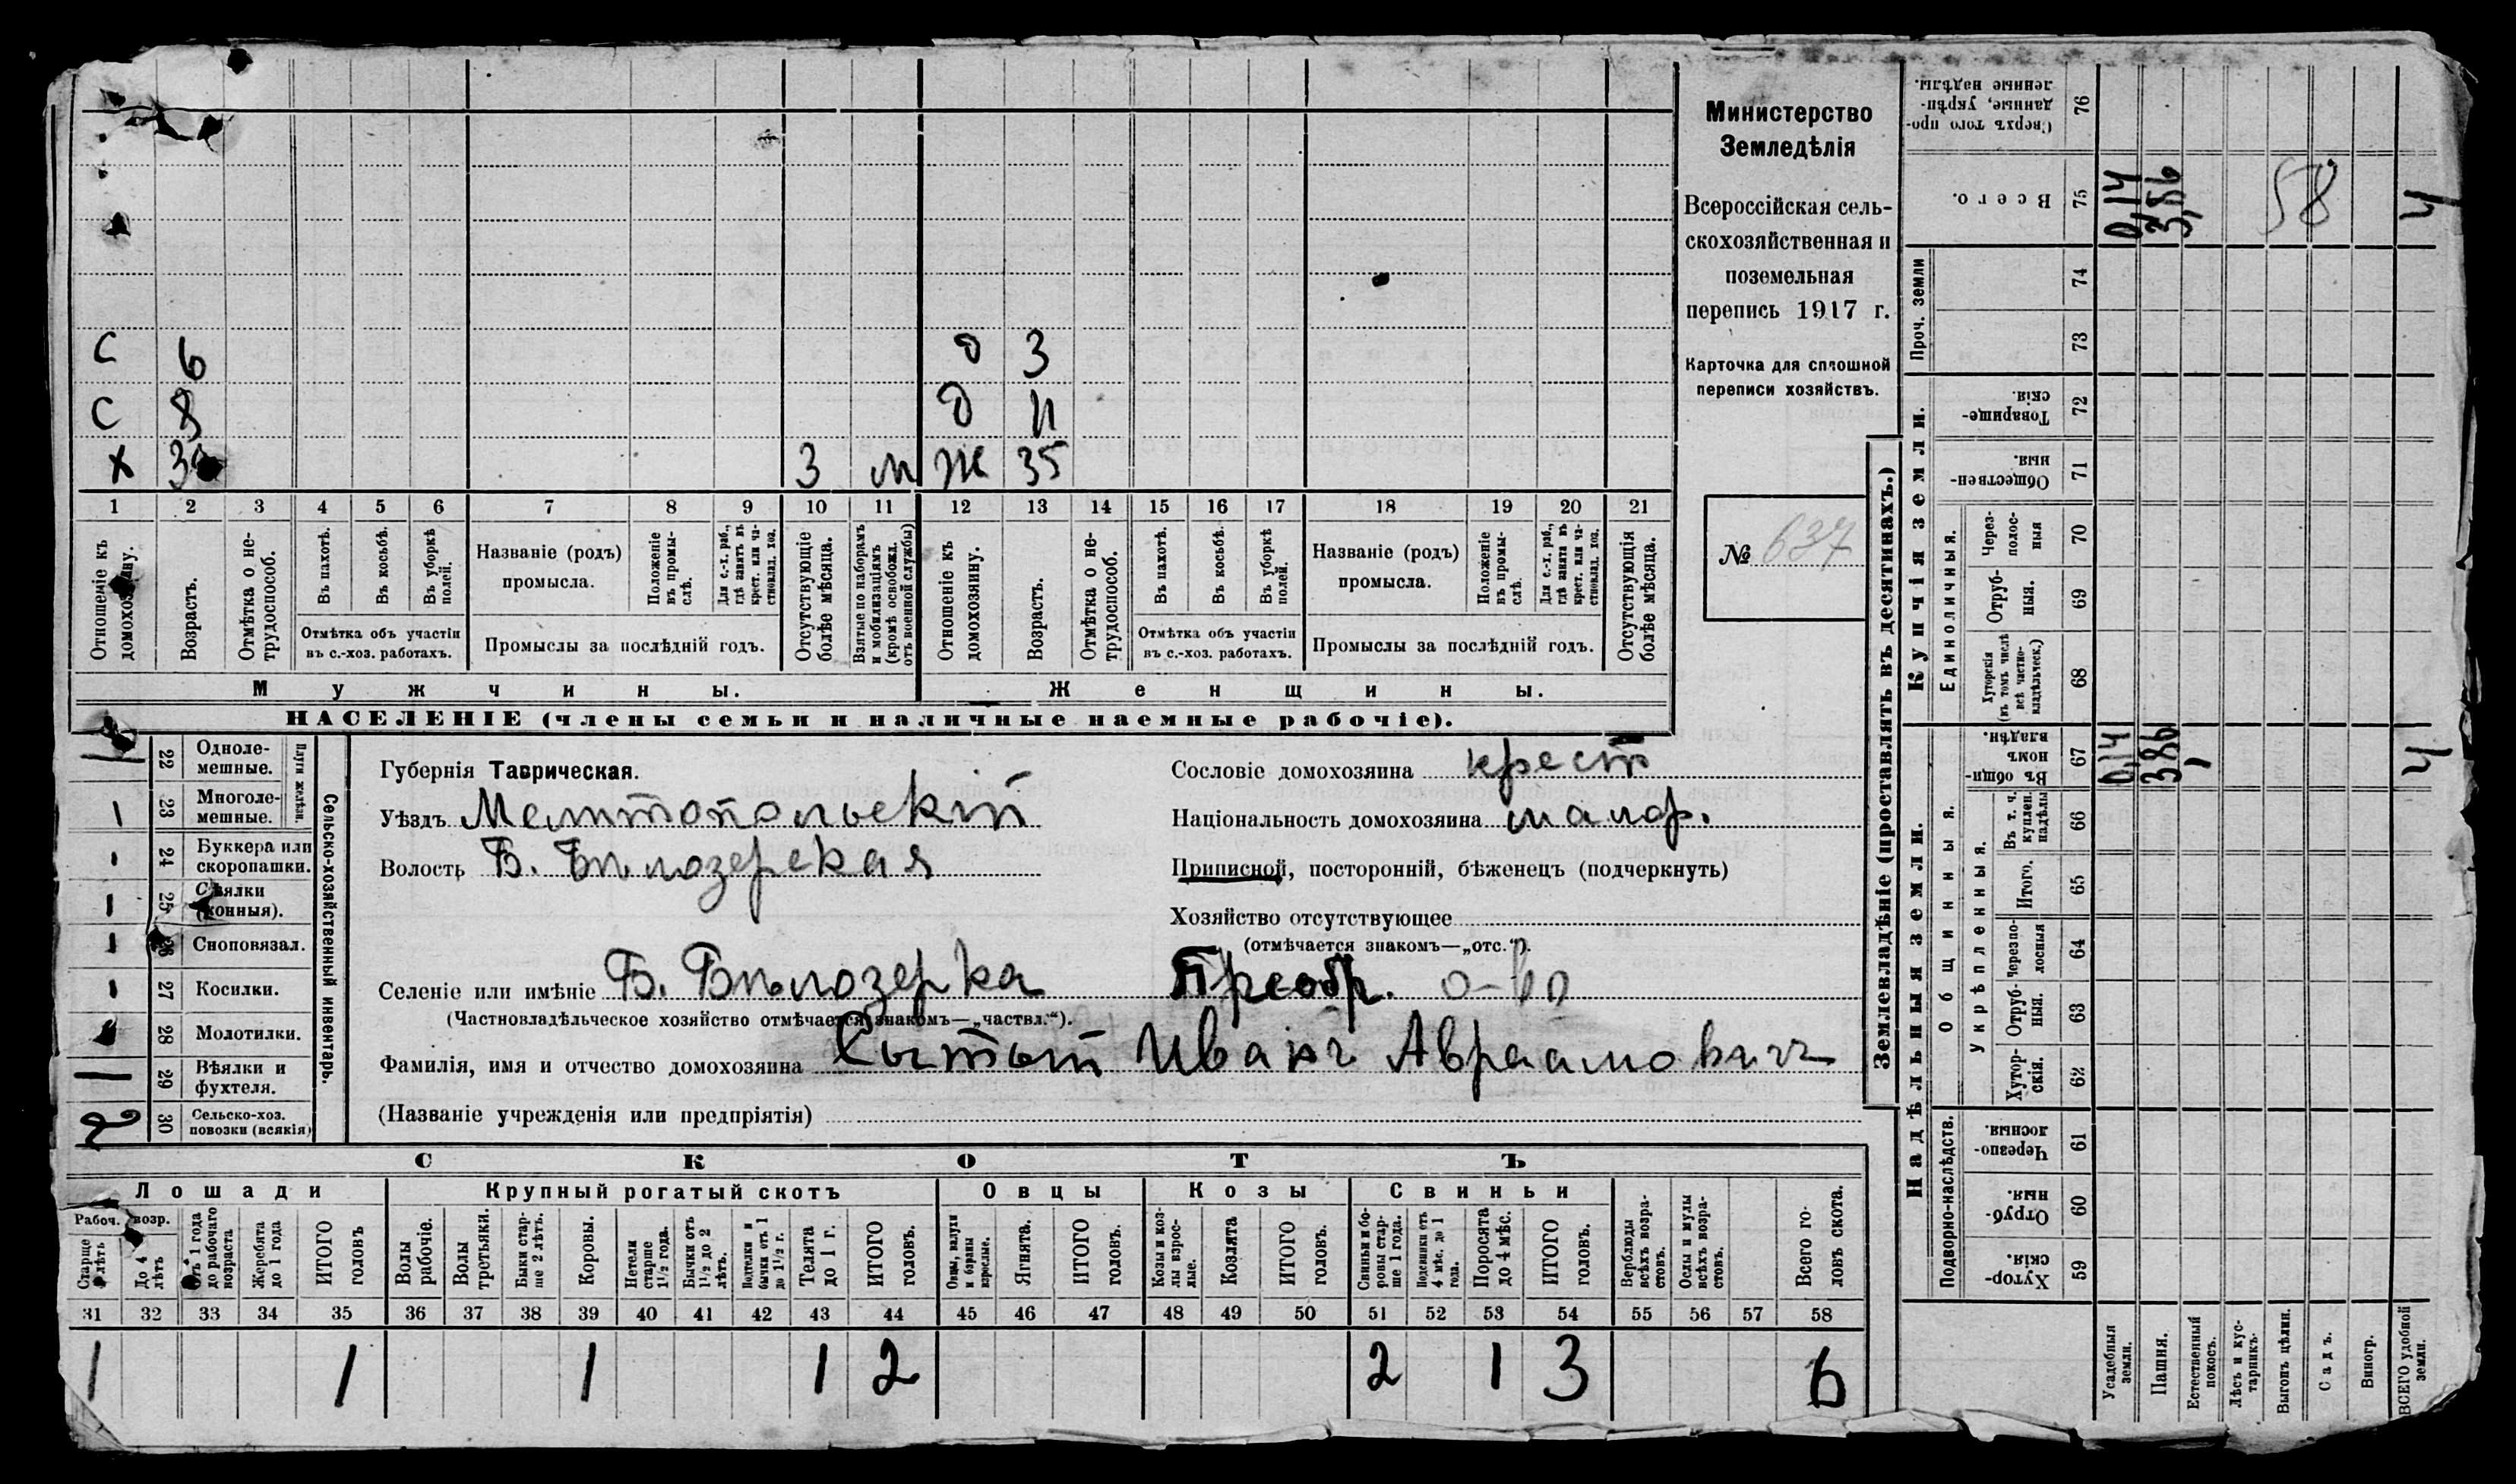 Министерство
Земледѣлія
Всероссійская сель-
скохозяйственная и
поземельная
перепись 1917 г.
Карточка для сплошной
переписи хозяйствъ.
№ 637
С 6 д 3
С 8 д 11
Х 3 м Ж 35
1 2 3 4 5 6 7 8 9 10 11 12 13 14 15 16 17 18 19 20 21
Отношеніе къ домохозяину.
Возрастъ.
Отмѣтка о не-трудоспособ.
Въ пахотѣ.
Въ косьбѣ.
Въ уборкѣ полей.
Отмѣтка объ участіи
въ с.-хоз. работахъ.
Названіе (родъ)
промысла.
Положеніе въ промы-слѣ.
Для с.-х. раб., гдѣ занятъ въ крест. или ча-стновлад. хоз.
Промыслы за послѣдній годъ.
Отсутствующіе болѣе мѣсяца.
Взятые по наборамъ и мобилизаціямъ (кромѣ освобожд. отъ военной службы)
Отношеніе къ домохозяину.
Возрастъ.
Отмѣтка о не-трудоспособ.
Въ пахотѣ.
Въ косьбѣ.
Въ уборкѣ полей.
Отмѣтка объ участіи
въ с.-хоз. работахъ.
Названіе (родъ)
промысла.
Положеніе въ промы-слѣ.
Для с.-х. раб., гдѣ занята въ крест. или ча-стновлад. хоз.
Промыслы за послѣдній годъ.
Отсутствующія болѣе мѣсяца.
Мужчины. Женщины.
НАСЕЛЕНІЕ (члены семьи и наличные наемные рабочіе).
Сельско-хозяйственный инвентарь.
Плуги желѣзн.
22 Одноле-мешные.
23 Многоле-мешные.
24 Буккера или скоропашки.
25 Сѣялки (конныя).
26 Сноповязал.
27 Косилки.
28 Молотилки.
29 Вѣялки и фухтеля.
2 30 Сельско-хоз. повозки (всякія)
Губернія Таврическая.
Уѣздъ Мелитопольскій
Волость Б. Бѣлозерская
Селеніе или имѣніе Б. Бѣлозерка Преобр. о-во
(Частновладѣльческое хозяйство отмѣчается знакомъ—„частвл.“).
Фамилія, имя и отчество домохозяина Сытый Иванъ Авраамовичъ
(Названіе учрежденія или предпріятія)
Сословіе домохозяина крест
Національность домохозяина малор.
Приписной, посторонній, бѣженецъ (подчеркнуть)
Хозяйство отсутствующее
(отмѣчается знакомъ—„отс.“).
СКОТЪ
Лошади Крупный рогатый скотъ Овцы Козы Свиньи
Рабоч. возр.
Старше 4 лѣтъ
До 4 лѣтъ
Отъ 1 года до рабочаго возраста
Жеребята до 1 года
ИТОГО головъ
Волы рабочіе.
Волы третьяки.
Быки стар-ше 2 лѣтъ.
Коровы.
Нетели старше 1 1/2 года.
Бычки отъ 1 1/2 до 2 лѣтъ.
Подтелки и бычки отъ 1 до 1 1/2 г.
Телята до 1 г.
ИТОГО головъ.
Овцы, валухи и бараны взрослые.
Ягнята.
ИТОГО головъ.
Козы и коз-лы взрос-лые.
Козлята
ИТОГО головъ.
Свиньи и бо-ровы стар-ше 1 года.
Подсвинки отъ 4 мѣс. до 1 года.
Поросята до 4 мѣс.
ИТОГО головъ.
Верблюды всѣхъ возра-стовъ.
Ослы и мулы всѣхъ возра-стовъ.
Всего го-ловъ скота.
31 32 33 34 35 36 37 38 39 40 41 42 43 44 45 46 47 48 49 50 51 52 53 54 55 56 57 58
1 1 1 1 2 2 1 3 6
Землевладѣніе (проставлять въ десятинахъ.)
Надѣльныя земли. Купчія земли. Проч. земли
Подворно-наслѣдств.
Общинныя.
Укрѣпленныя.
Единоличныя.
59 Хутор-скія.
60 Отруб-ныя.
61 Черезпо-лосныя.
62 Хутор-скія.
63 Отруб-ныя.
64 Черезпо-лосныя
65 Итого.
66 Въ т. ч. куплен. надѣлы
67 Въ общи-номъ владѣн. 0,14 3,86 4
68 Хуторскія (въ томъ числѣ всѣ частно-владѣльческ.)
69 Отруб-ныя.
70 Через-полос-ныя
71 Обществен-ныя.
72 Товарище-скія.
73
74
75 Всего. 0,14 3,86 58 4
76 Сверхъ того про-данные, укрѣп-ленные надѣлы.
Усадебныя земли.
Пашня.
Естественный покосъ.
Лѣсъ и кус-тарникъ.
Выгонъ цѣлин.
Садъ.
Виногр.
ВСЕГО удобной земли.